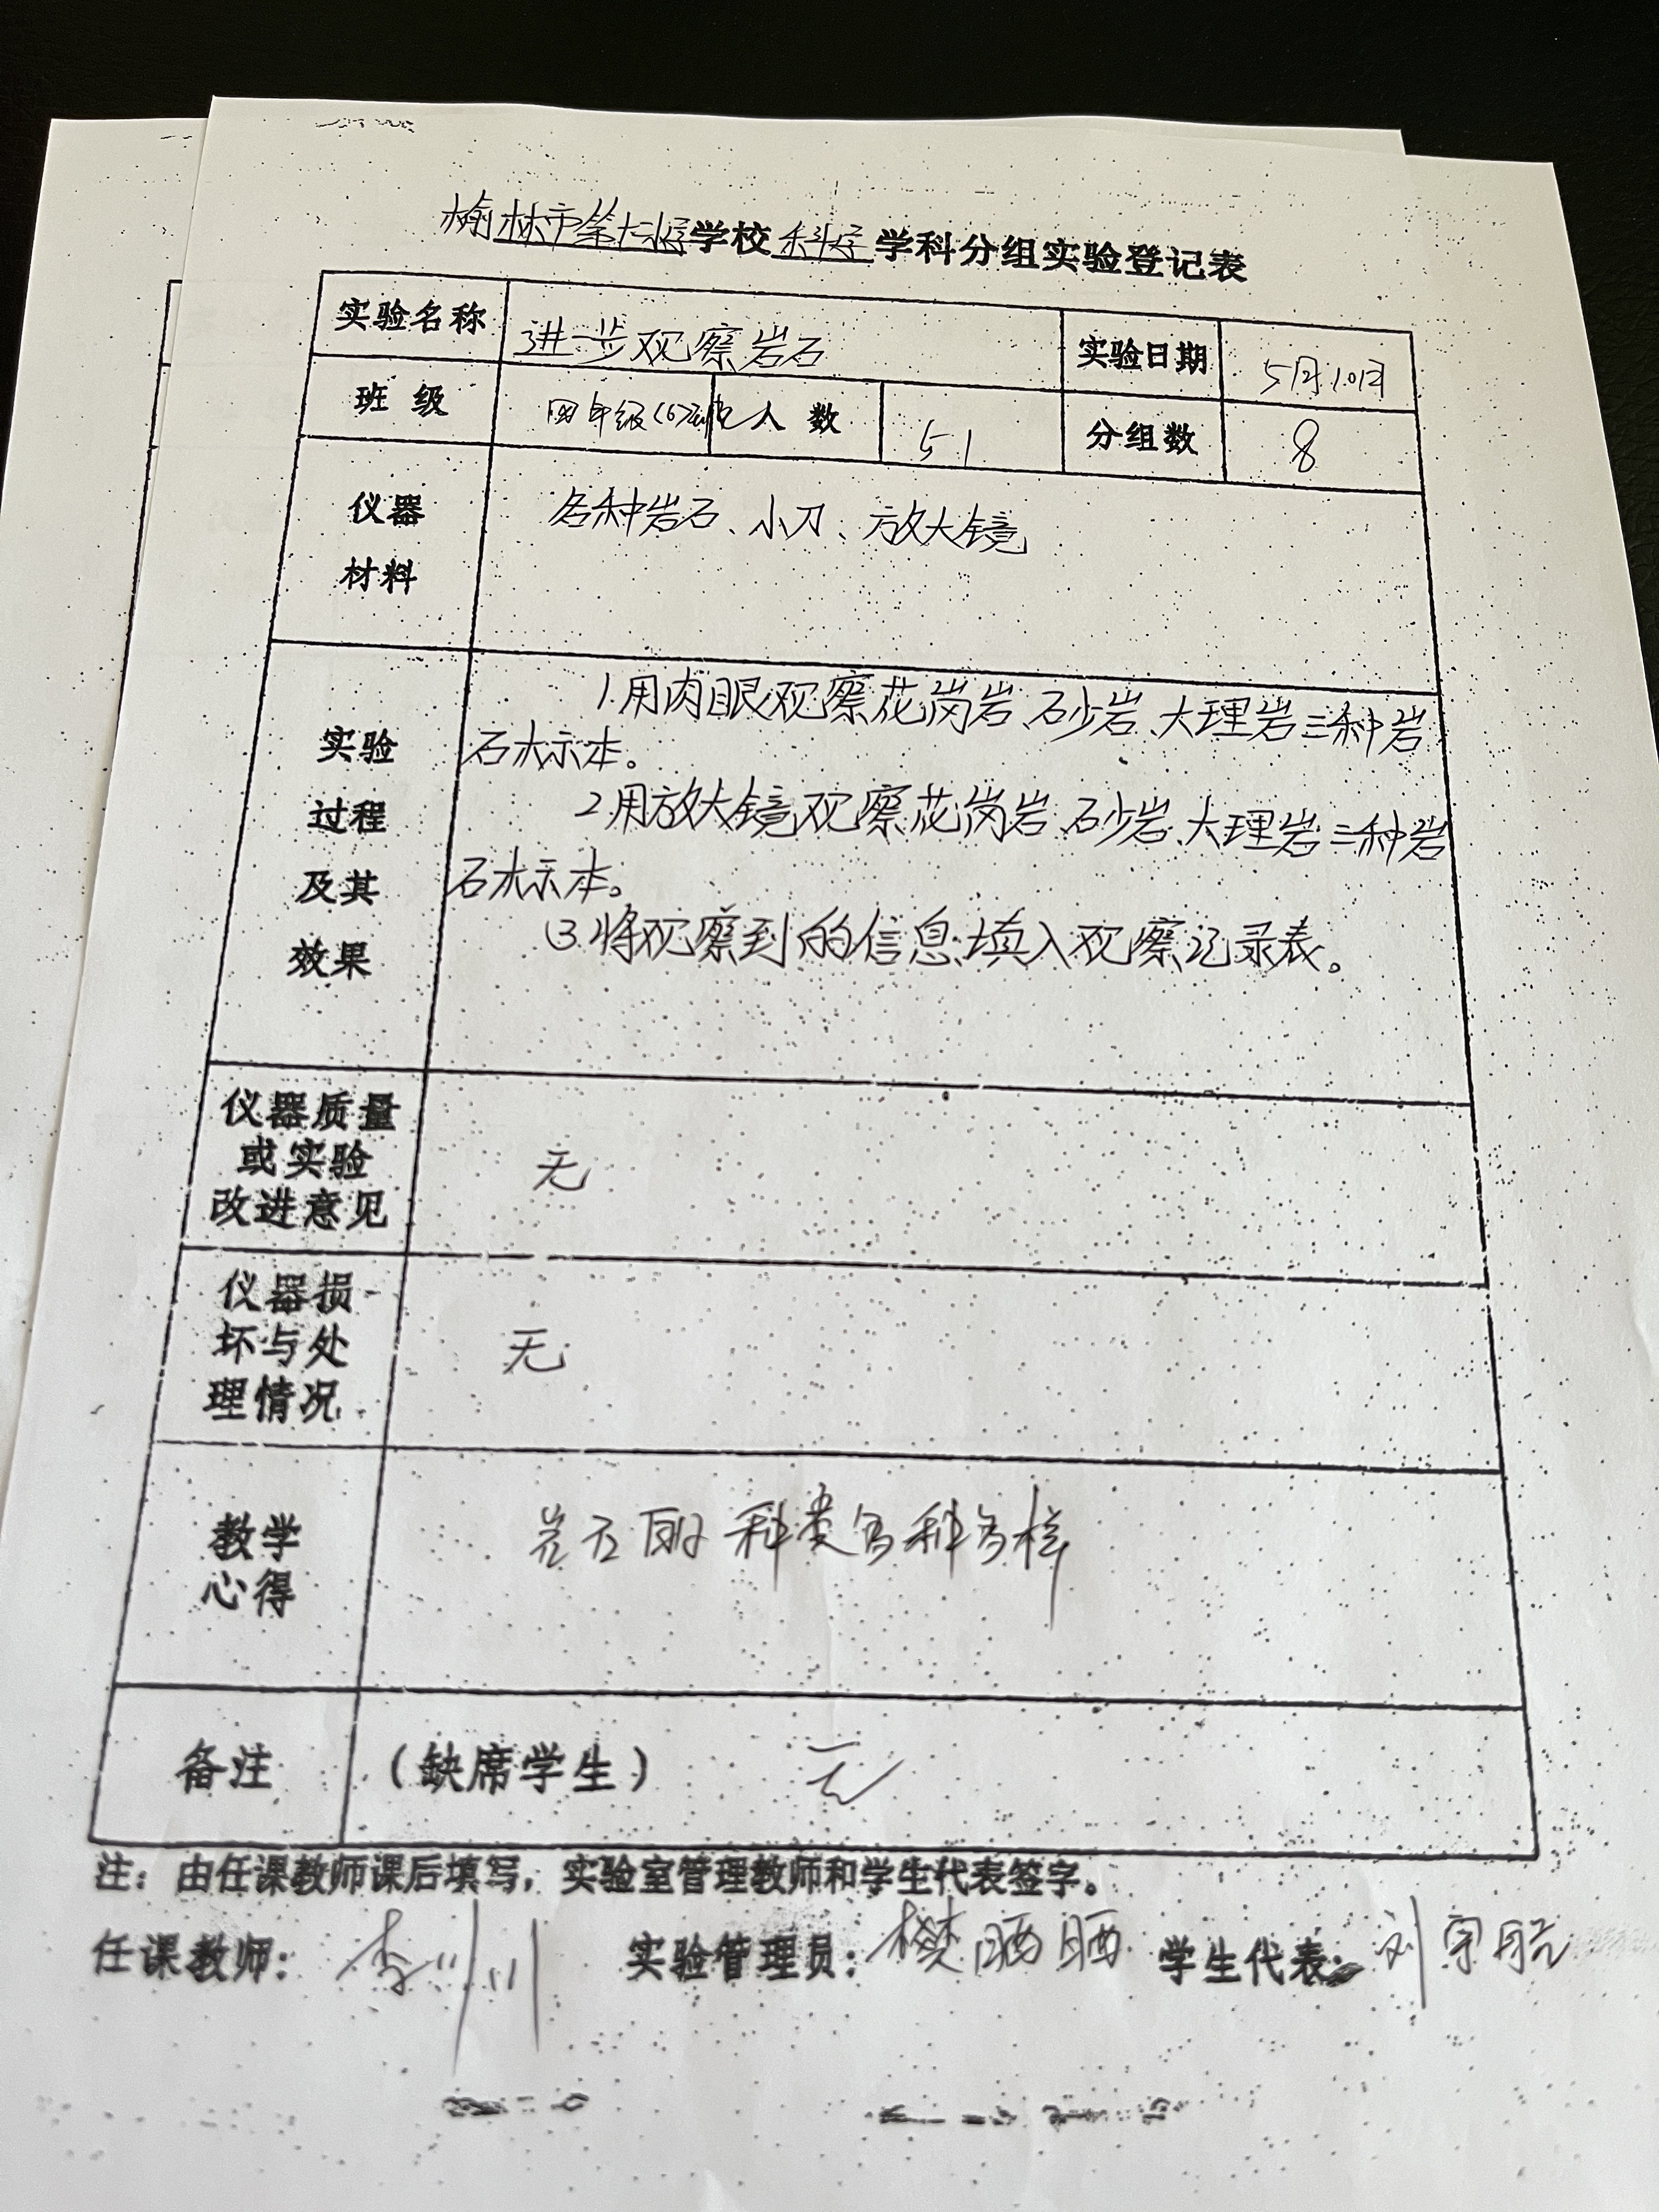 榆林市第十六小学学校科学学科分组实验登记表
实验名称 进一步观察岩石 实验日期 5月10日
班 级 四年级(6)班 人 数 51 分组数 8
仪器 各种岩石、小刀、放大镜
材料
1.用肉眼观察花岗岩、砂岩、大理岩三种岩
实验 石标本。
过程 2.用放大镜观察花岗岩、砂岩、大理岩三种岩
及其 石标本。
效果 3.将观察到的信息填入观察记录表。
仪器质量
或实验 无
改进意见
仪器损
坏与处 无
理情况
教学 岩石的种类多种多样
心得
备注 (缺席学生) 无
注：由任课教师课后填写，实验室管理教师和学生代表签字。
任课教师： 李 实验管理员：樊晒晒 学生代表：刘宇航